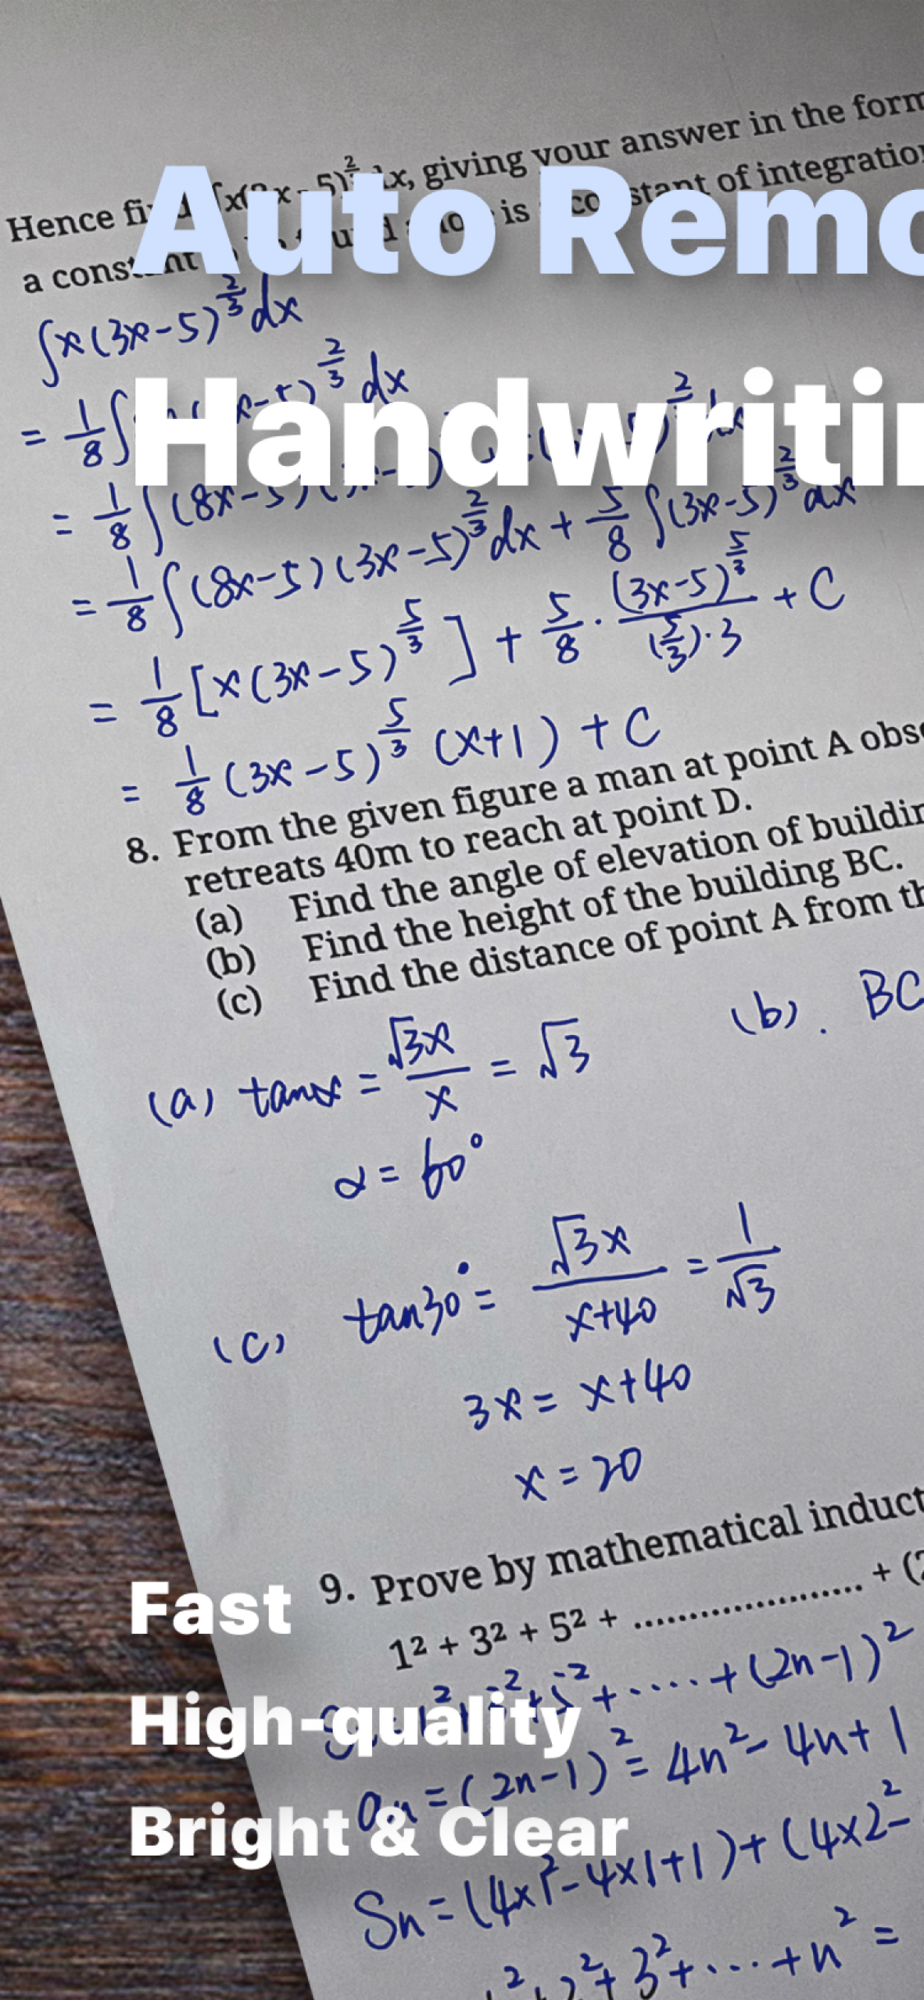 Hence fi ∫x(3x-5)^(2/3) dx, giving your answer in the form
a constant is constant of integration
Auto Remo
∫x(3x-5)^(2/3) dx
Handwriti
= 1/8 ∫ (8x-5)
= 1/8 ∫(8x-5)(3x-5)^(2/3) dx + 5/8 ∫(3x-5)^(2/3) dx
= 1/8 [x(3x-5)^(5/3)] + 5/8 · (3x-5)^(5/3) / (5/3)·3 + C
= 1/8 (3x-5)^(5/3) (x+1) + C
8. From the given figure a man at point A obse
retreats 40m to reach at point D.
(a) Find the angle of elevation of buildin
(b) Find the height of the building BC.
(c) Find the distance of point A from th
(a) tanα = √3x/x = √3 (b). BC
α = 60°
(c) tan30° = √3x/(x+40) = 1/√3
3x = x+40
x = 20
9. Prove by mathematical induct
1² + 3² + 5² + ..................... + (2
Fast
+ ····· + (2n-1)²
High-quality
an = (2n-1)² = 4n² - 4n + 1
Bright & Clear
Sn = (4x1²-4x1+1) + (4x2²-
² + 2² + 3² + ··· + n² =